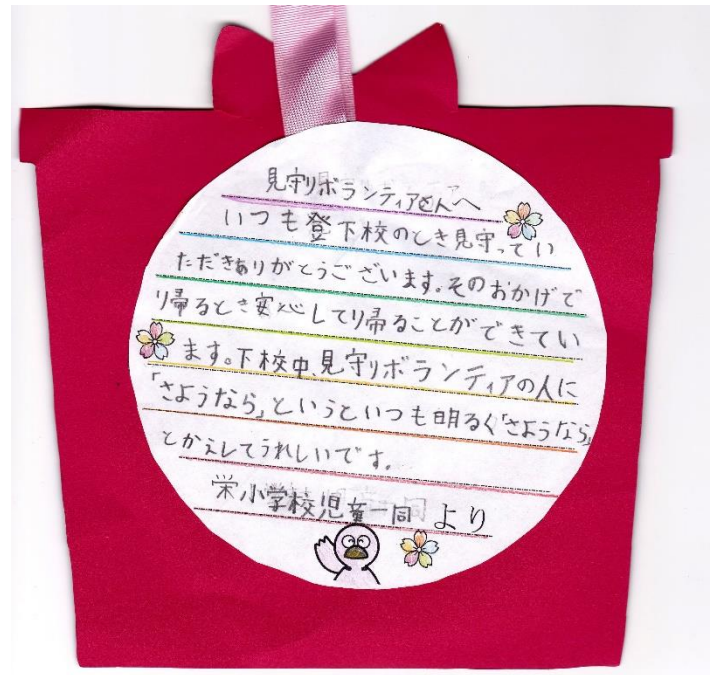 見守りボランティアさんへ
いつも登下校のとき見守ってい
ただきありがとうございます。そのおかげで
帰るとき安心して帰ることができてい
ます。下校中、見守りボランティアの人に
「さようなら」というといつも明るく「さようなら」
とかえしてうれしいです。
栄小学校児童一同より